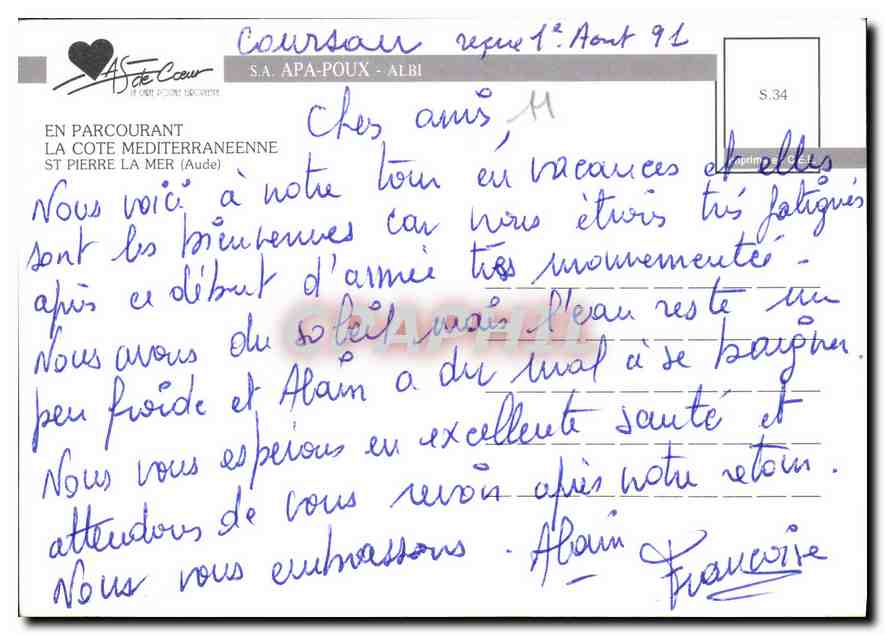 Coursan reçue 1e. Aout 91
AS de Cœur
LA CARTE POSTALE EUROPEENNE
S.A. APA-POUX - ALBI
S.34
Imprimé en C.E.E.
EN PARCOURANT
LA COTE MEDITERRANEENNE
ST PIERRE LA MER (Aude)
Chers amis,
Nous voici à notre tour en vacances et elles
sont les bienvenues car nous étions très fatigués
après ce début d'année très mouvementée -
Nous avons du soleil mais l'eau reste un
peu froide et Alain a du mal à se baigner.
Nous vous espérons en excellente santé et
attendons de vous revoir après notre retour.
Nous vous embrassons. Alain
Françoise
CPAPHIL